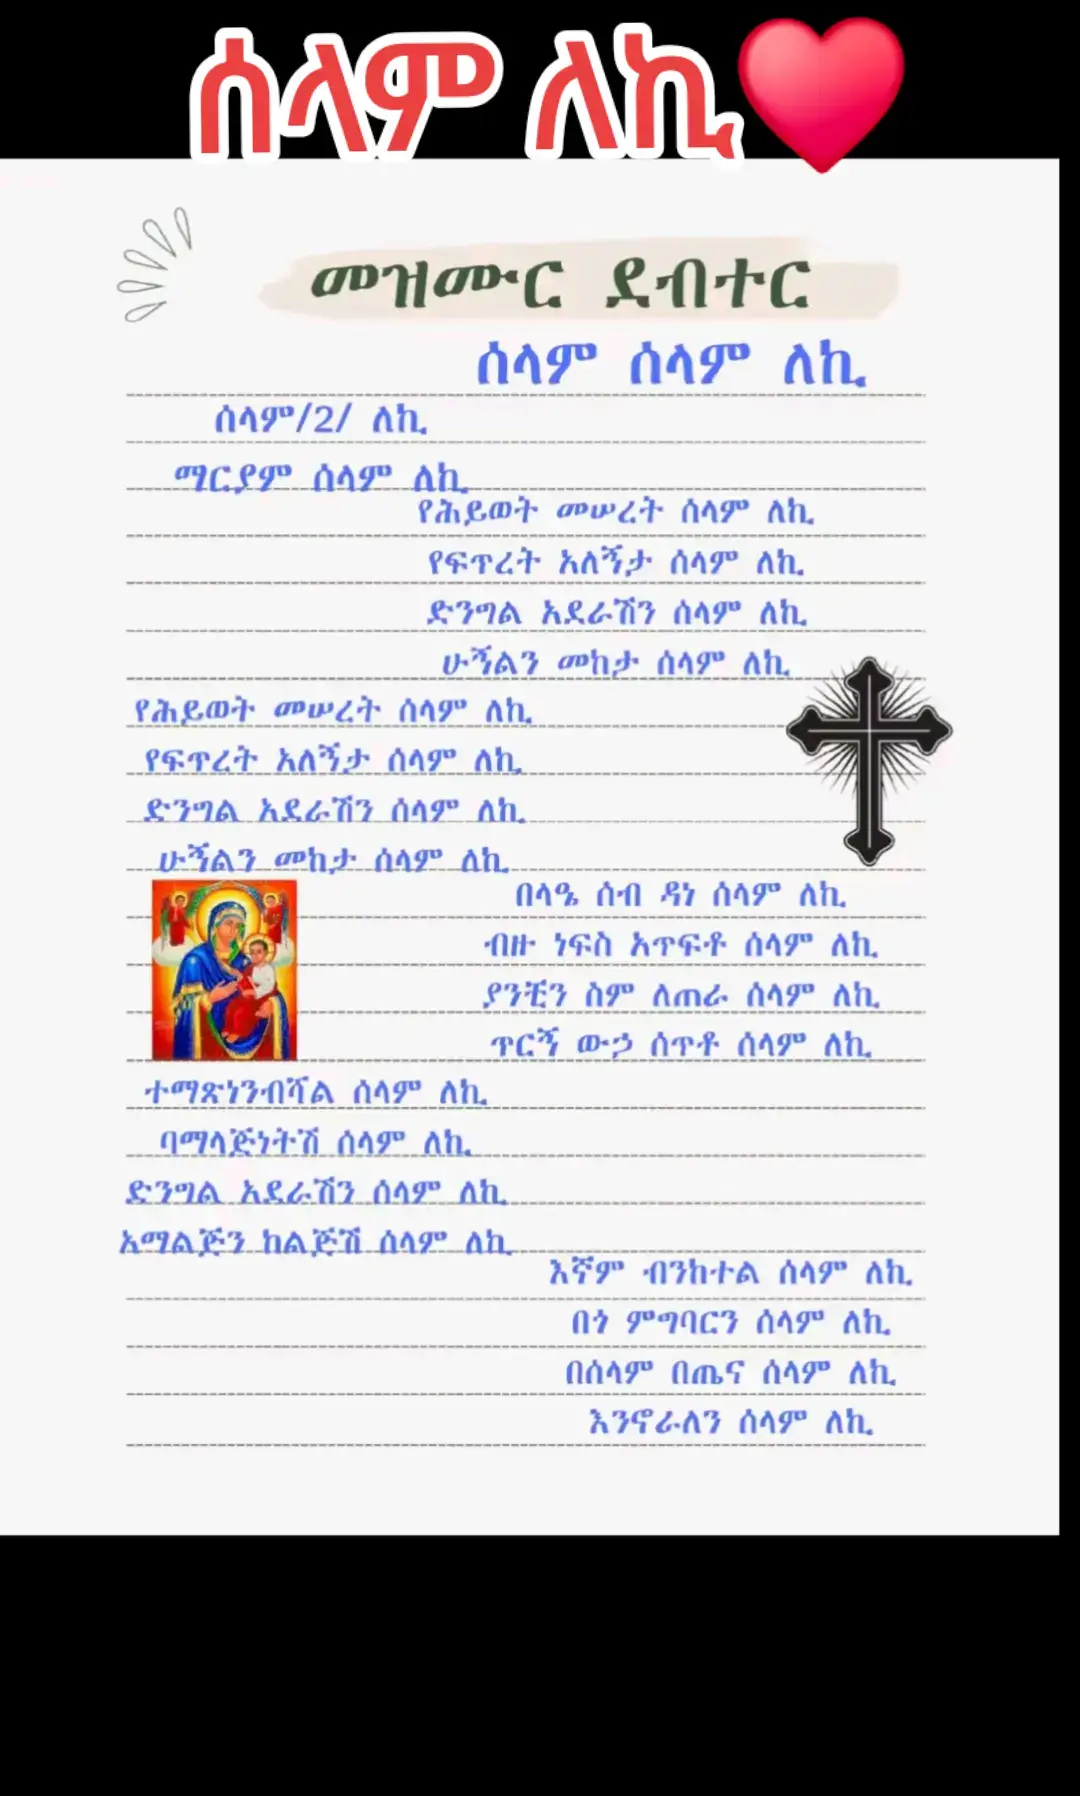 ሰላም ለኪ
መዝሙር ደብተር
ሰላም ሰላም ለኪ
ሰላም/2/ ለኪ
ማርያም ሰላም ለኪ
የሕይወት መሠረት ሰላም ለኪ
የፍጥረት አለኝታ ሰላም ለኪ
ድንግል አደራሽን ሰላም ለኪ
ሁኝልን መከታ ሰላም ለኪ
የሕይወት መሠረት ሰላም ለኪ
የፍጥረት አለኝታ ሰላም ለኪ
ድንግል አደራሽን ሰላም ለኪ
ሁኝልን መከታ ሰላም ለኪ
በላዔ ሰብ ዳነ ሰላም ለኪ
ብዙ ነፍስ አጥፍቶ ሰላም ለኪ
ያንቺን ስም ለጠራ ሰላም ለኪ
ጥርኝ ውኃ ሰጥቶ ሰላም ለኪ
ተማጽነንብሻል ሰላም ለኪ
ባማላጅነትሽ ሰላም ለኪ
ድንግል አደራሽን ሰላም ለኪ
አማልጅን ከልጅሽ ሰላም ለኪ
እኛም ብንከተል ሰላም ለኪ
በጎ ምግባርን ሰላም ለኪ
በሰላም በጤና ሰላም ለኪ
እንኖራለን ሰላም ለኪ